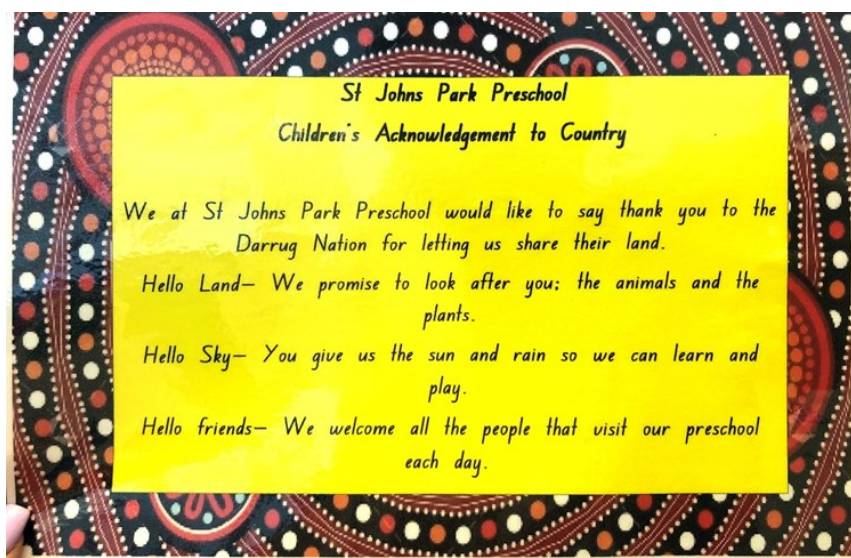 St Johns Park Preschool
Children's Acknowledgement to Country
We at St Johns Park Preschool would like to say thank you to the
Darrug Nation for letting us share their land.
Hello Land— We promise to look after you; the animals and the
plants.
Hello Sky— You give us the sun and rain so we can learn and
play.
Hello friends— We welcome all the people that visit our preschool
each day.